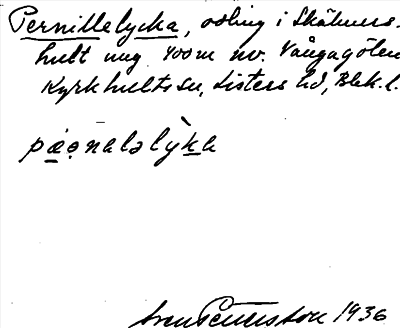 Pernillelycka, odling i Skåhus-
hult ung. 400 m nv. Vångagölen
Kyrkhults sn, Listers hd, Blek. l.
pæṇalәlỳka
Sven Petersson 1936